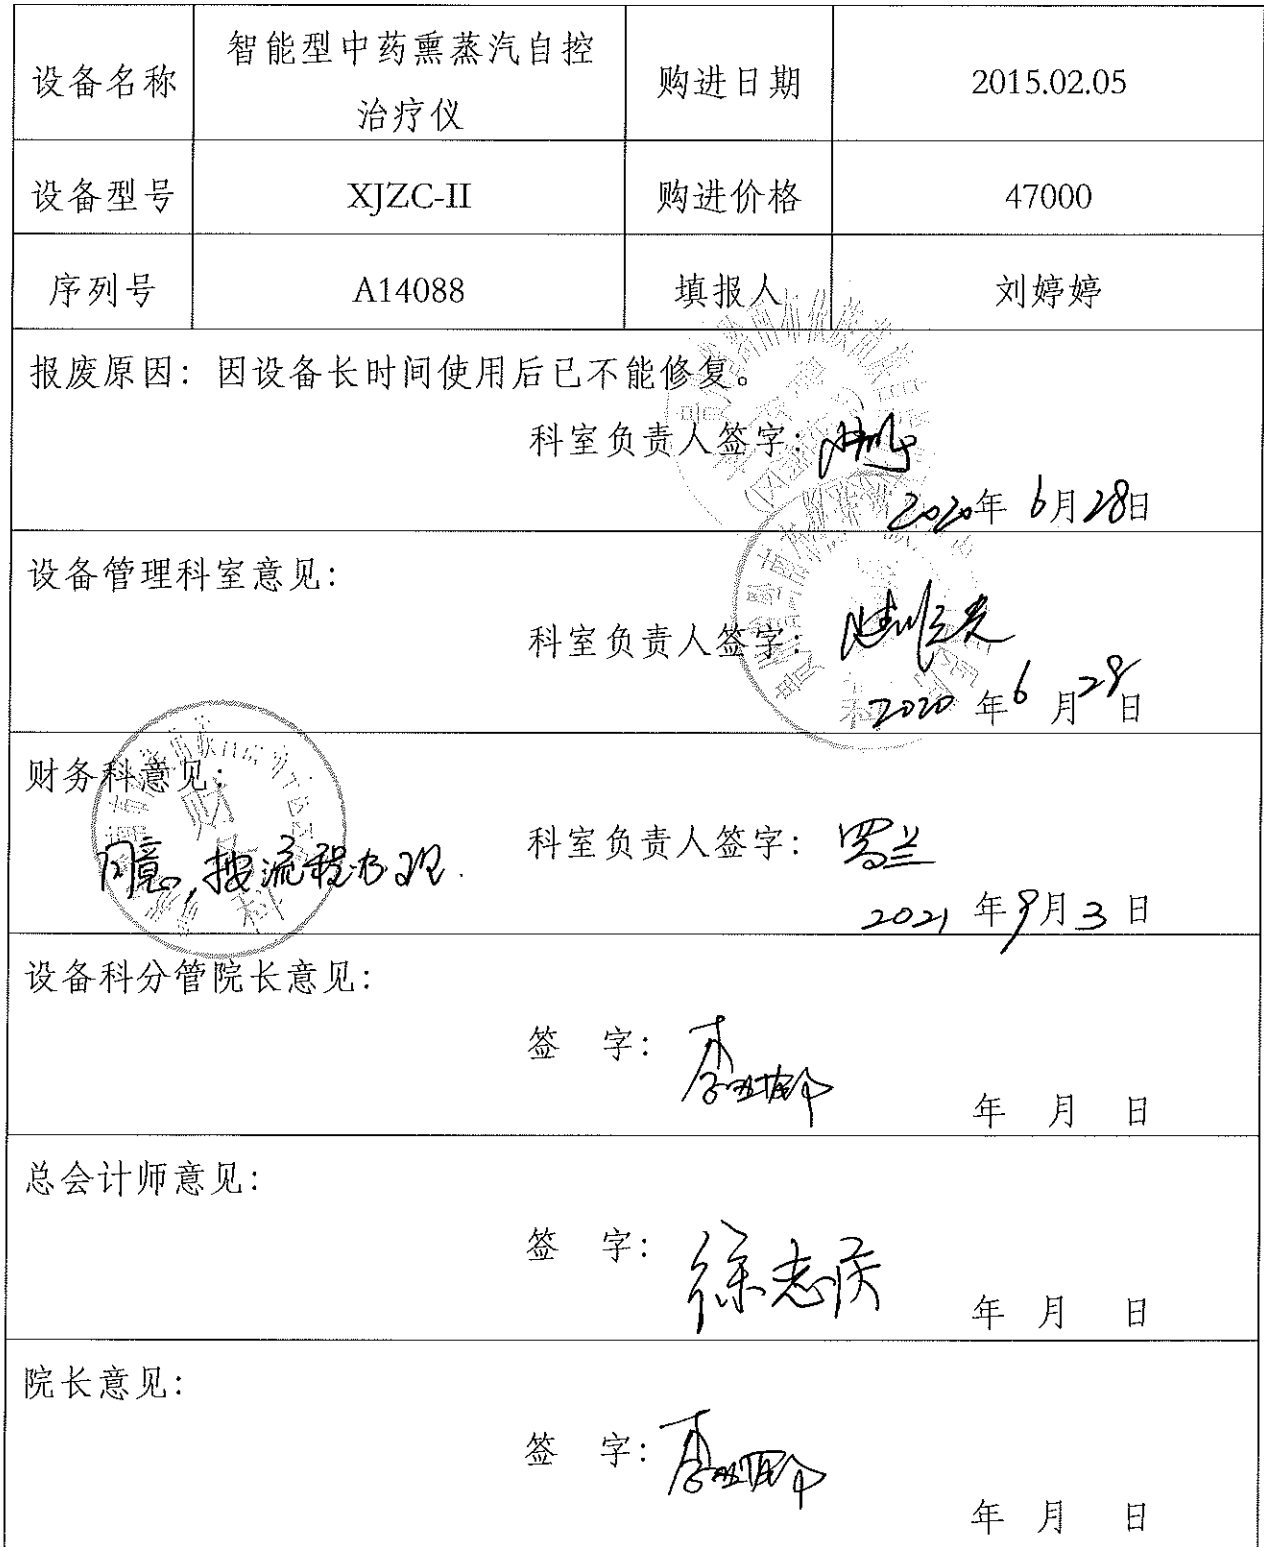 设备名称 智能型中药熏蒸汽自控治疗仪 购进日期 2015.02.05
设备型号 XJZC-II 购进价格 47000
序列号 A14088 填报人 刘婷婷
报废原因：因设备长时间使用后已不能修复。
科室负责人签字：
2020年 6月28日
设备管理科室意见：
科室负责人签字：
2020 年 6 月 28 日
财务科意见：
同意，按流程办理．
科室负责人签字： 罗兰
2021 年 9月 3 日
设备科分管院长意见：
签 字：
年 月 日
总会计师意见：
签 字： 徐志庆
年 月 日
院长意见：
签 字：
年 月 日